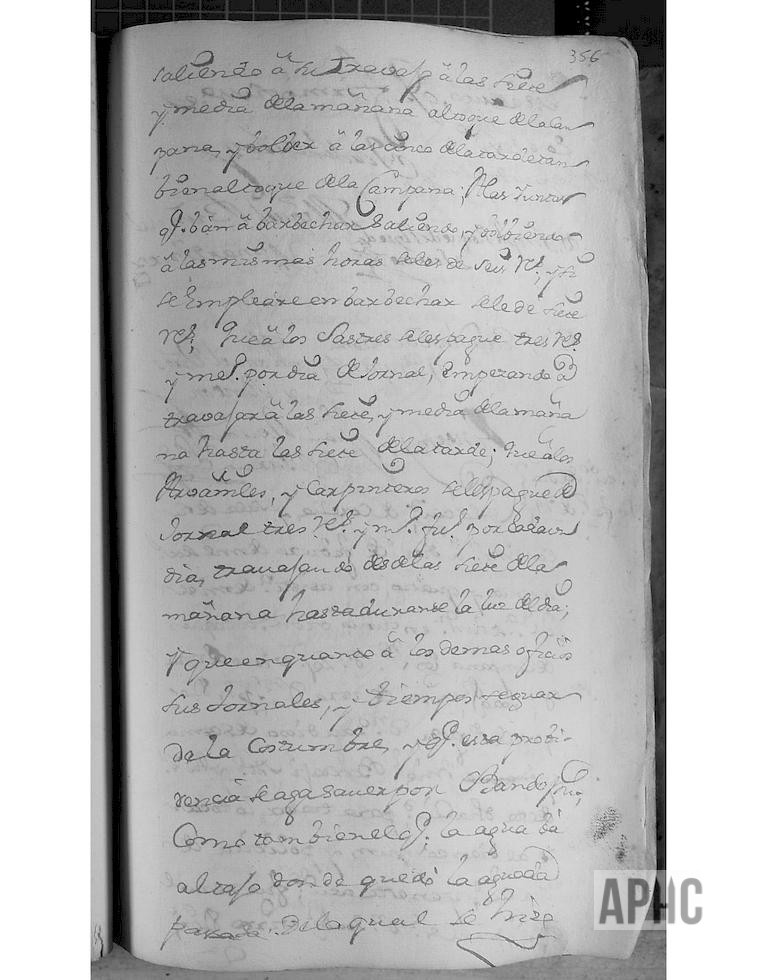 356
saliendo â su travajo â las siete
y media de la mañana al toque de la Can
pana, y bolber â las cinco de la tarde tan
bien al toque de la Campana; Las Yuntas
q.e ban â barbechar saliendo, y volbiendo
â las mismas horas seles de seis r.s; y si
se Empleare en barbechar sele de siete
r.s; Que â los Sastres seles pague tres r.s
y m.e por dia de Jornal, Empezando â
travajar â las siete, y media de la maña
na hasta las siete de la tarde; Que â los
Alvañiles, y Carpinteros seles pague de
Jornal tres r.s y m.o por cada un
dia, travajando desde las siete de la
mañana hasta durante la luz del dia;
Y que en quanto â los demas oficios
sus Jornales, y tiempos seguar
de la Costumbre, y q.e esta probi-
dencia se aga saver por Bando
Como tambien el q.e la agua bâ
al taso donde quedo la aguada
pasada. De la qual se hizo
APHC